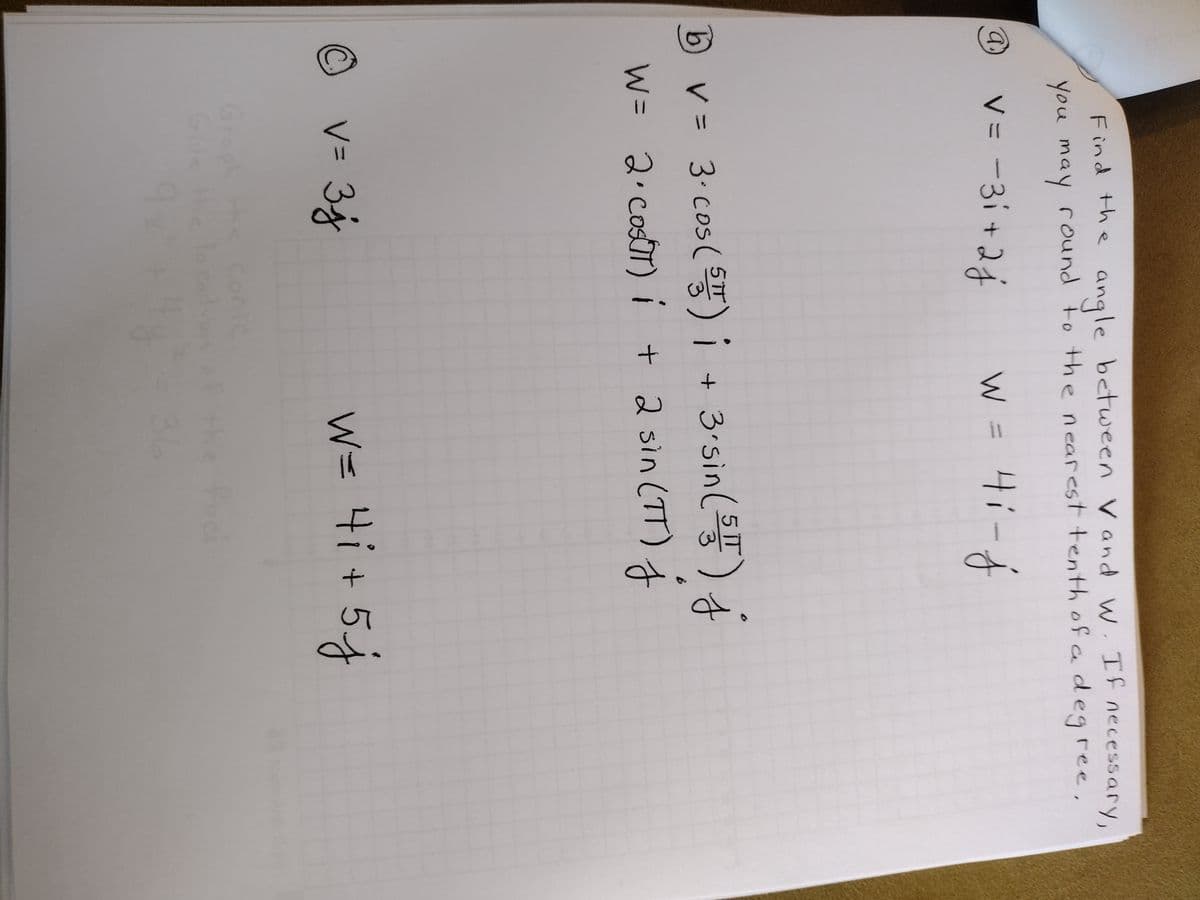 Find the angle between V and W. If necessary,
you may round to the nearest tenth of a degree.
a. V = -3i + 2j W = 4i - j
b V = 3·cos(5π/3) i + 3·sin(5π/3) j
W = 2·cos(π) i + 2 sin(π) j
c. V = 3j W = 4i + 5j